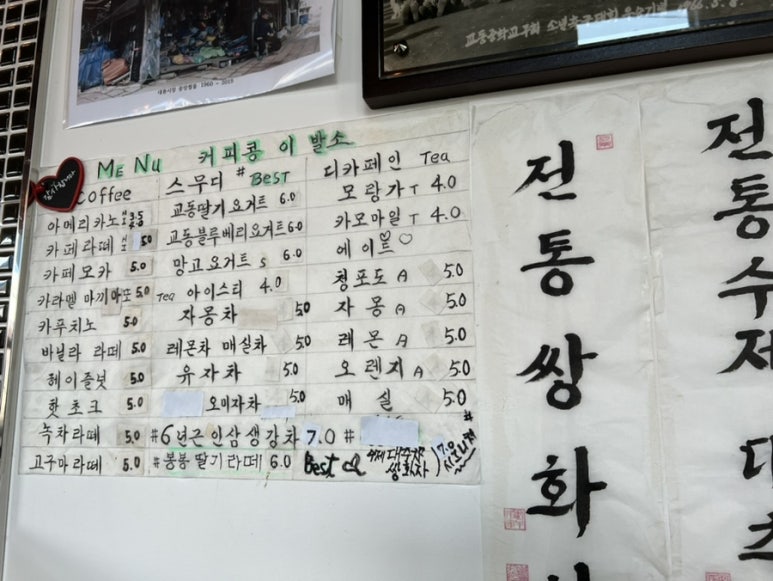 대룡시장 골목집들 1960 ~ 2015
MENU 커피콩 이발소
Coffee
아메리카노 3.5
카페라떼 5.0
카페모카 5.0
카라멜 마끼아또 5.0
카푸치노 5.0
바닐라 라떼 5.0
헤이즐넛 5.0
핫초크 5.0
녹차라떼 5.0
고구마라떼 5.0
스무디 # BEST
교동딸기요거트 6.0
교동블루베리요거트 6.0
망고요거트 s 6.0
Tea 아이스티 4.0
자몽차 5.0
레몬차 매실차 5.0
유자차 5.0
오미자차 5.0
#6년근인삼생강차 7.0 #
#봉봉딸기라떼 6.0
디카페인 Tea
모랑가 T 4.0
카모마일 T 4.0
에이드 ♡
청포도 A 5.0
자몽 A 5.0
레몬 A 5.0
오렌지 A 5.0
매실 5.0
#
Best 수제 대추차 쌍화차 7.0
전통쌍화
전통수제대추